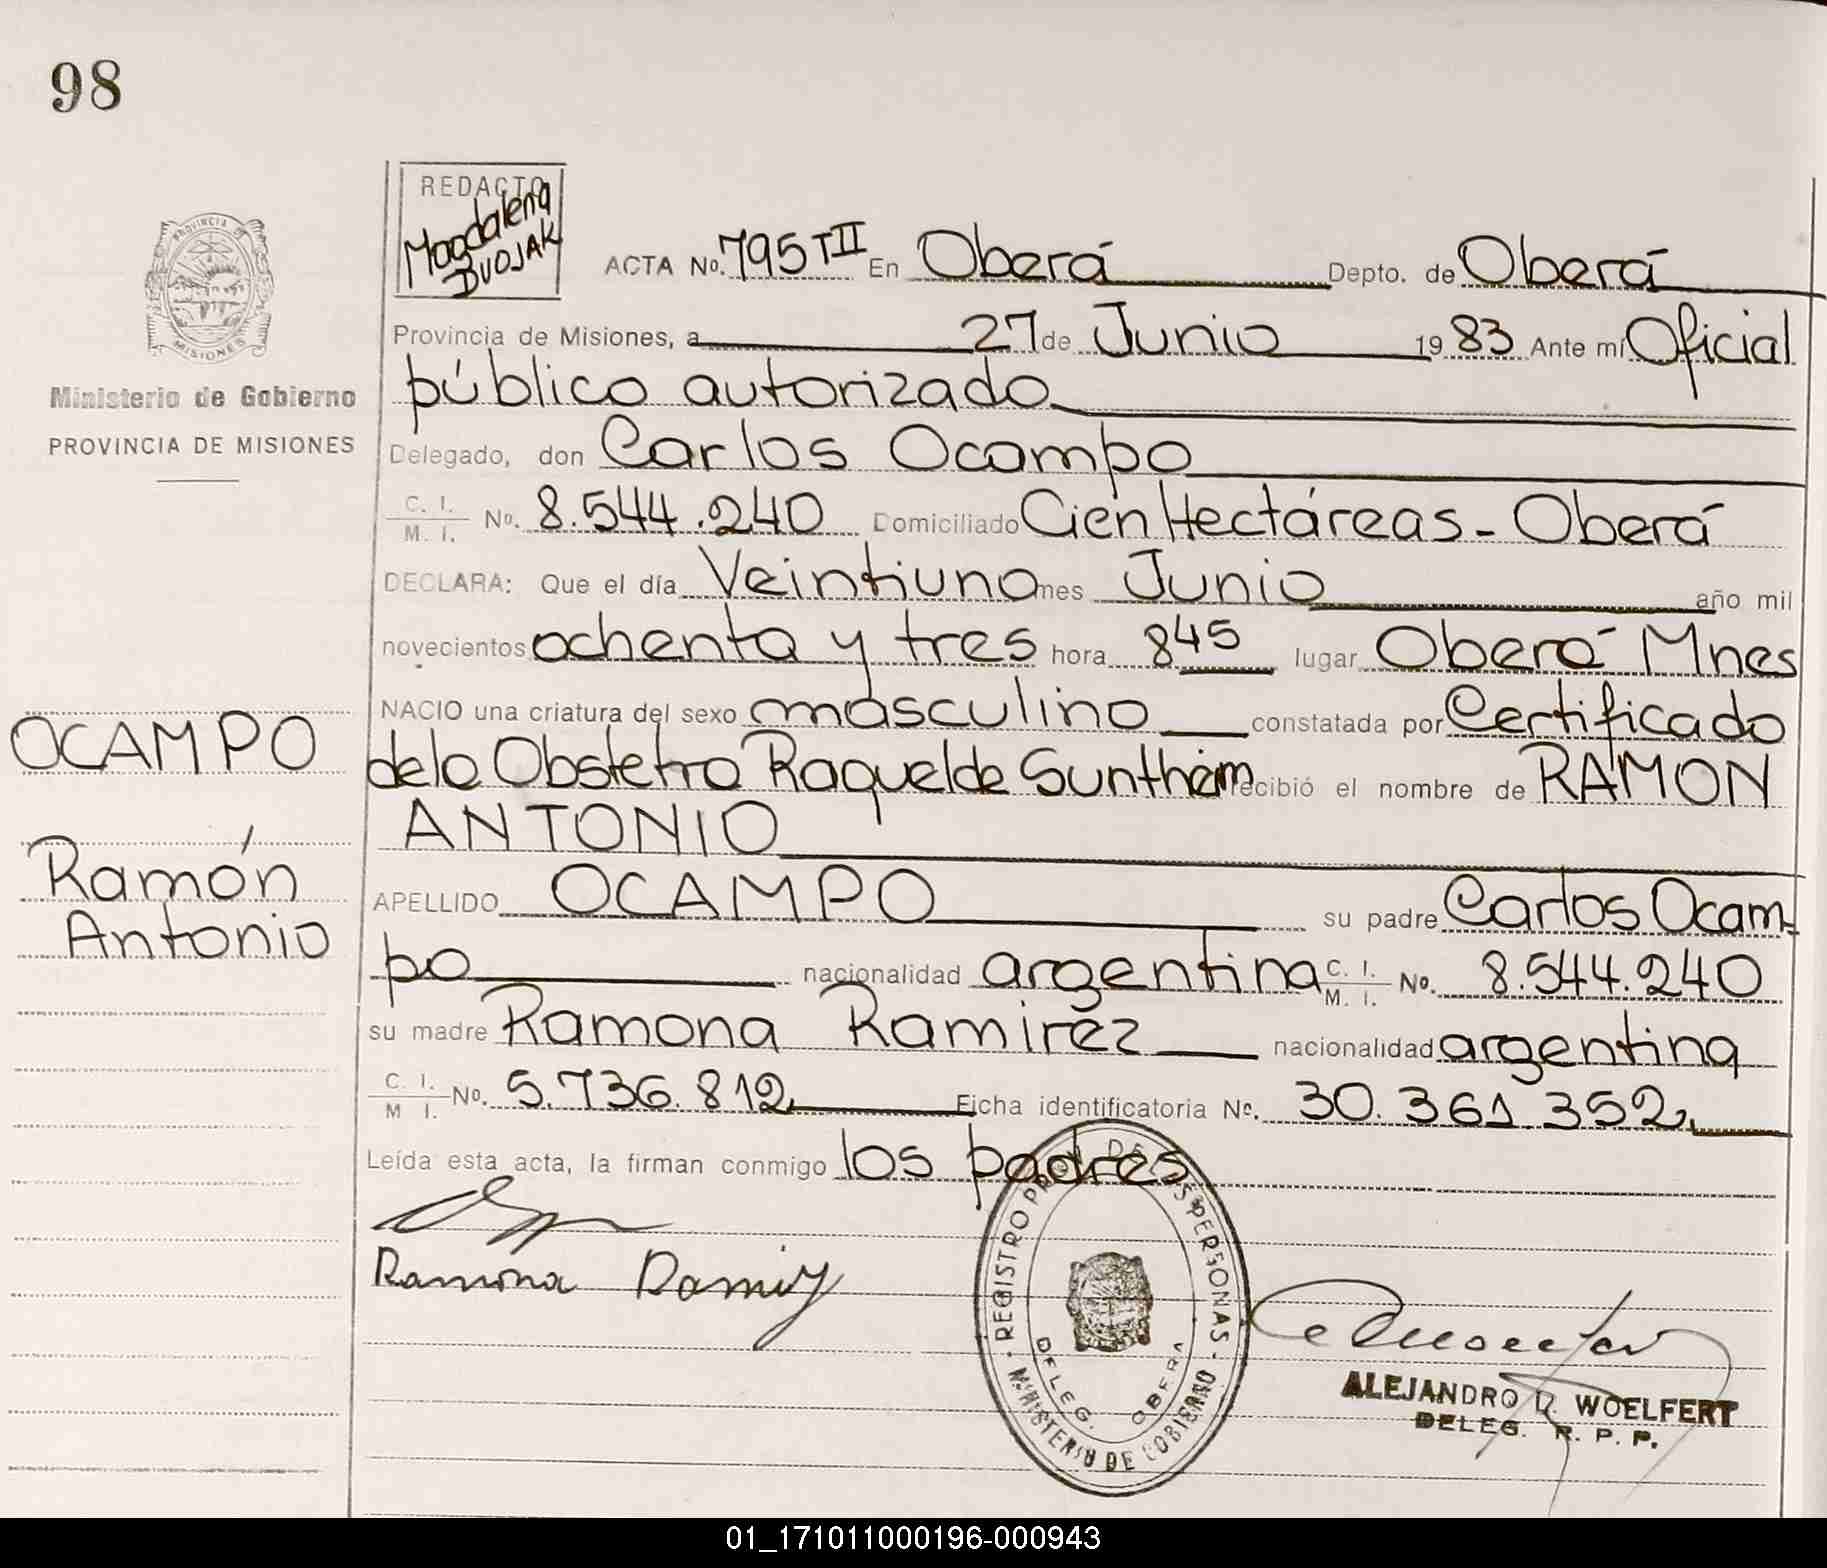 98
PROVINCIA DE
MISIONES
Ministerio de Gobierno
PROVINCIA DE MISIONES
OCAMPO
Ramón
Antonio
REDACTO
Magdalena
DUOJAK
ACTA No. 795 TII En Oberá Depto. de Oberá
Provincia de Misiones, a 27 de Junio 1983 Ante mí Oficial
público autorizado
Delegado, don Carlos Ocampo
C. I. / M. I. No. 8.544.240 Domiciliado Cien Hectáreas - Oberá
DECLARA: Que el día Veintiuno mes Junio año mil
novecientos ochenta y tres hora 8 45 lugar Oberá Mnes
NACIO una criatura del sexo masculino constatada por Certificado
de la Obstetra Raquel de Sunthem recibió el nombre de RAMON
ANTONIO
APELLIDO OCAMPO su padre Carlos Ocam-
po nacionalidad argentina C. I. / M. I. No. 8.544.240
su madre Ramona Ramiréz nacionalidad argentina
C. I. / M I. No. 5.736.812 Ficha identificatoria No. 30.361.352
Leída esta acta, la firman conmigo los padres
Ramona Ramirez
REGISTRO DE LAS PERSONAS
DELEG. OBERA
MINISTERIO DE GOBIERNO
ALEJANDRO D. WOELFERT
DELEG. R. P. P.
01_171011000196-000943